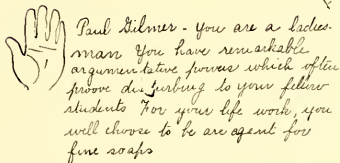 Paul Gilmer - You are a ladies-
man You have remarkable
argumentative powers which often
proove disturbing to your fellow
students For your life work, you
will choose to be are agent for
fine soaps